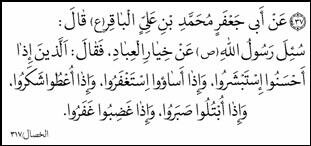 (٣٧) عَنْ أَبي جَعفَرٍ مُحَمَّدِ بْنِ عَلِيٍّ الْباقِرِ(ع) قالَ:
سُئِلَ رَسُولُ اللهِ(ص) عَنْ خِيارِ الْعِبادِ، فَقالَ: اَلَّذينَ إِذا
أَحْسَنُوا إِسْتَبْشَرُوا، وَإِذا أَساؤوا اِسْتَغْفَرُوا، وَإِذا أُعْطُوا شَكَرُوا،
وَإِذا اُبْتُلُوا صَبَرُوا، وَإِذا غَضِبُوا غَفَرُوا.
الخصال/٣١٧